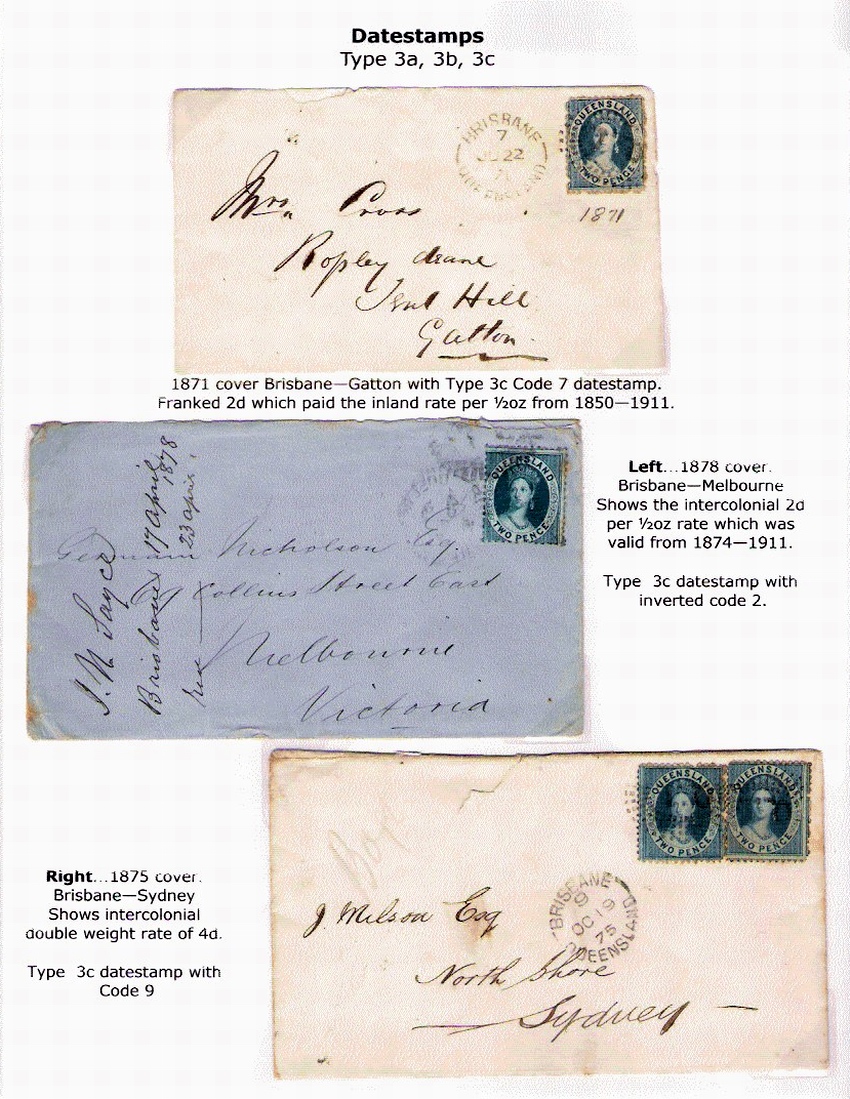 Datestamps
Type 3a, 3b, 3c
BRISBANE
7
22
71
QUEENSLAND
QUEENSLAND
TWO PENCE
1871
Mrs. Cross
Ropley deane
Tent Hill
Gatton.
1871 cover Brisbane—Gatton with Type 3c Code 7 datestamp.
Franked 2d which paid the inland rate per ½oz from 1850—1911.
QUEENSLAND
TWO PENCE
Nicholson Esq
Collins Street East
Melbourne
Victoria
J. M Sayce
Brisbane 17 April 1878
23 april
Left...1878 cover.
Brisbane—Melbourne
Shows the intercolonial 2d
per ½oz rate which was
valid from 1874—1911.
Type 3c datestamp with
inverted code 2.
QUEENSLAND
TWO PENCE
QUEENSLAND
TWO PENCE
BRISBANE
9
OC 19
75
QUEENSLAND
J. Milson Esq
North Shore
Sydney
Right...1875 cover.
Brisbane—Sydney
Shows intercolonial
double weight rate of 4d.
Type 3c datestamp with
Code 9